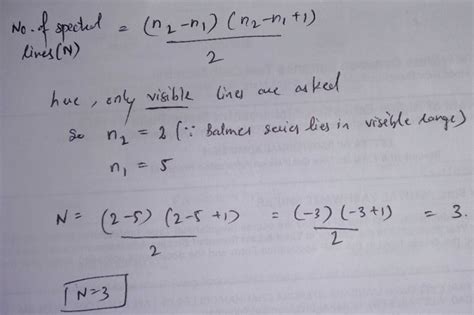 No. of spectral lines (N) = (n2-n1) (n2-n1+1) / 2
here, only visible lines are asked
So n2 = 2 (∵ Balmer series lies in visible range)
n1 = 5
N = (2-5) (2-5+1) / 2 = (-3) (-3+1) / 2 = 3.
N=3